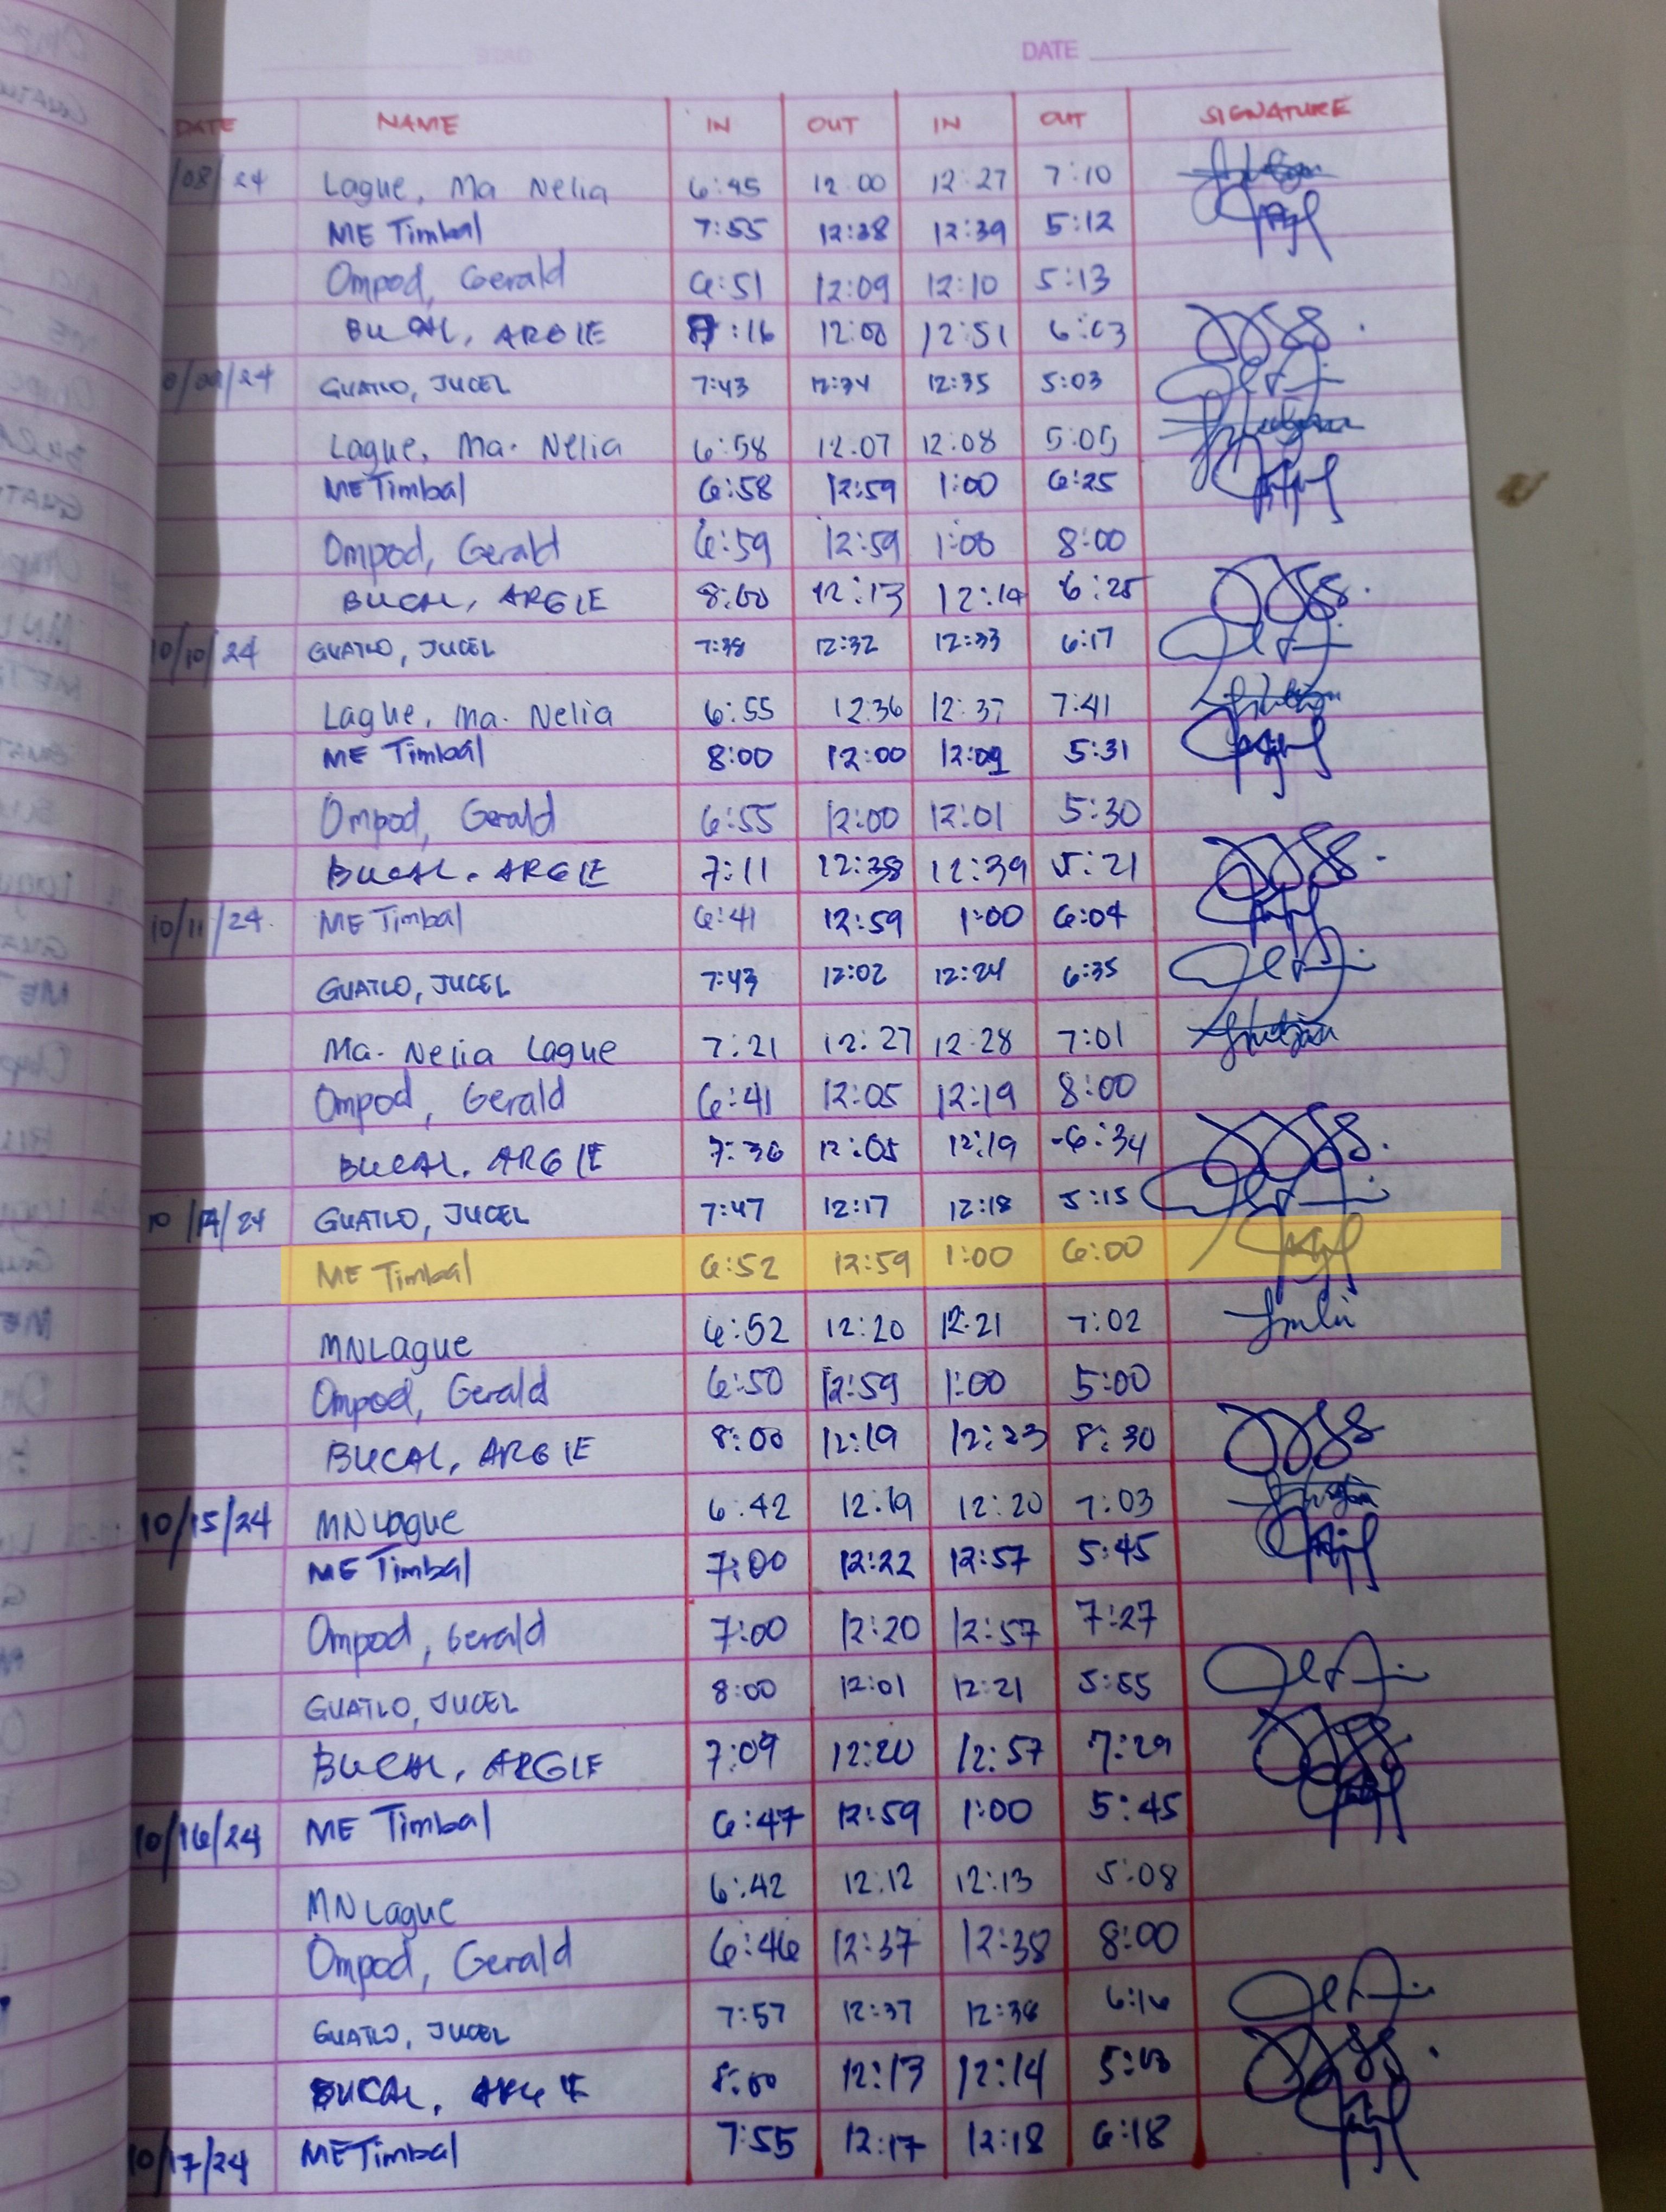 DATE
DATE NAME IN OUT IN OUT SIGNATURE
/08/24 Lague, Ma Nelia 6:45 12:00 12:27 7:10
ME Timbal 7:55 12:38 12:39 5:12
Ompod, Gerald 6:51 12:09 12:10 5:13
BUCAL, ARGIE :16 12:00 12:51 6:03
0/09/24 GUATLO, JUCEL 7:43 12:34 12:35 5:03
Lague, Ma. Nelia 6:58 12:07 12:08 5:05
ME Timbal 6:58 12:59 1:00 6:25
Ompod, Gerald 6:59 12:59 1:00 8:00
BUCAL, ARGIE 8:00 12:13 12:14 6:25
10/10/24 GUATLO, JUCEL 7:38 12:32 12:33 6:17
Lague, Ma. Nelia 6:55 12:36 12:37 7:41
ME Timbal 8:00 12:00 12:01 5:31
Ompod, Gerald 6:55 12:00 12:01 5:30
BUCAL, ARGIE 7:11 12:38 12:39 5:21
10/11/24 ME Timbal 6:41 12:59 1:00 6:04
GUATLO, JUCEL 7:43 12:02 12:24 6:35
Ma. Nelia Lague 7:21 12:27 12:28 7:01
Ompod, Gerald 6:41 12:05 12:19 8:00
BUCAL, ARGIE 7:36 12:05 12:19 6:34
10/14/24 GUATLO, JUCEL 7:47 12:17 12:18 5:15
ME Timbal 6:52 12:59 1:00 6:00
MNLague 6:52 12:20 12:21 7:02
Ompod, Gerald 6:50 12:59 1:00 5:00
BUCAL, ARGIE 8:00 12:19 12:23 8:30
10/15/24 MNLague 6:42 12:19 12:20 7:03
ME Timbal 7:00 12:22 12:57 5:45
Ompod, Gerald 7:00 12:20 12:57 7:27
GUATLO, JUCEL 8:00 12:01 12:21 5:55
BUCAL, ARGIE 7:09 12:20 12:57 7:29
10/16/24 ME Timbal 6:47 12:59 1:00 5:45
MNLague 6:42 12:12 12:13 5:08
Ompod, Gerald 6:46 12:37 12:38 8:00
GUATLO, JUCEL 7:57 12:37 12:38 6:16
BUCAL, ARGIE 8:00 12:13 12:14 5:13
10/17/24 ME Timbal 7:55 12:17 12:18 6:18